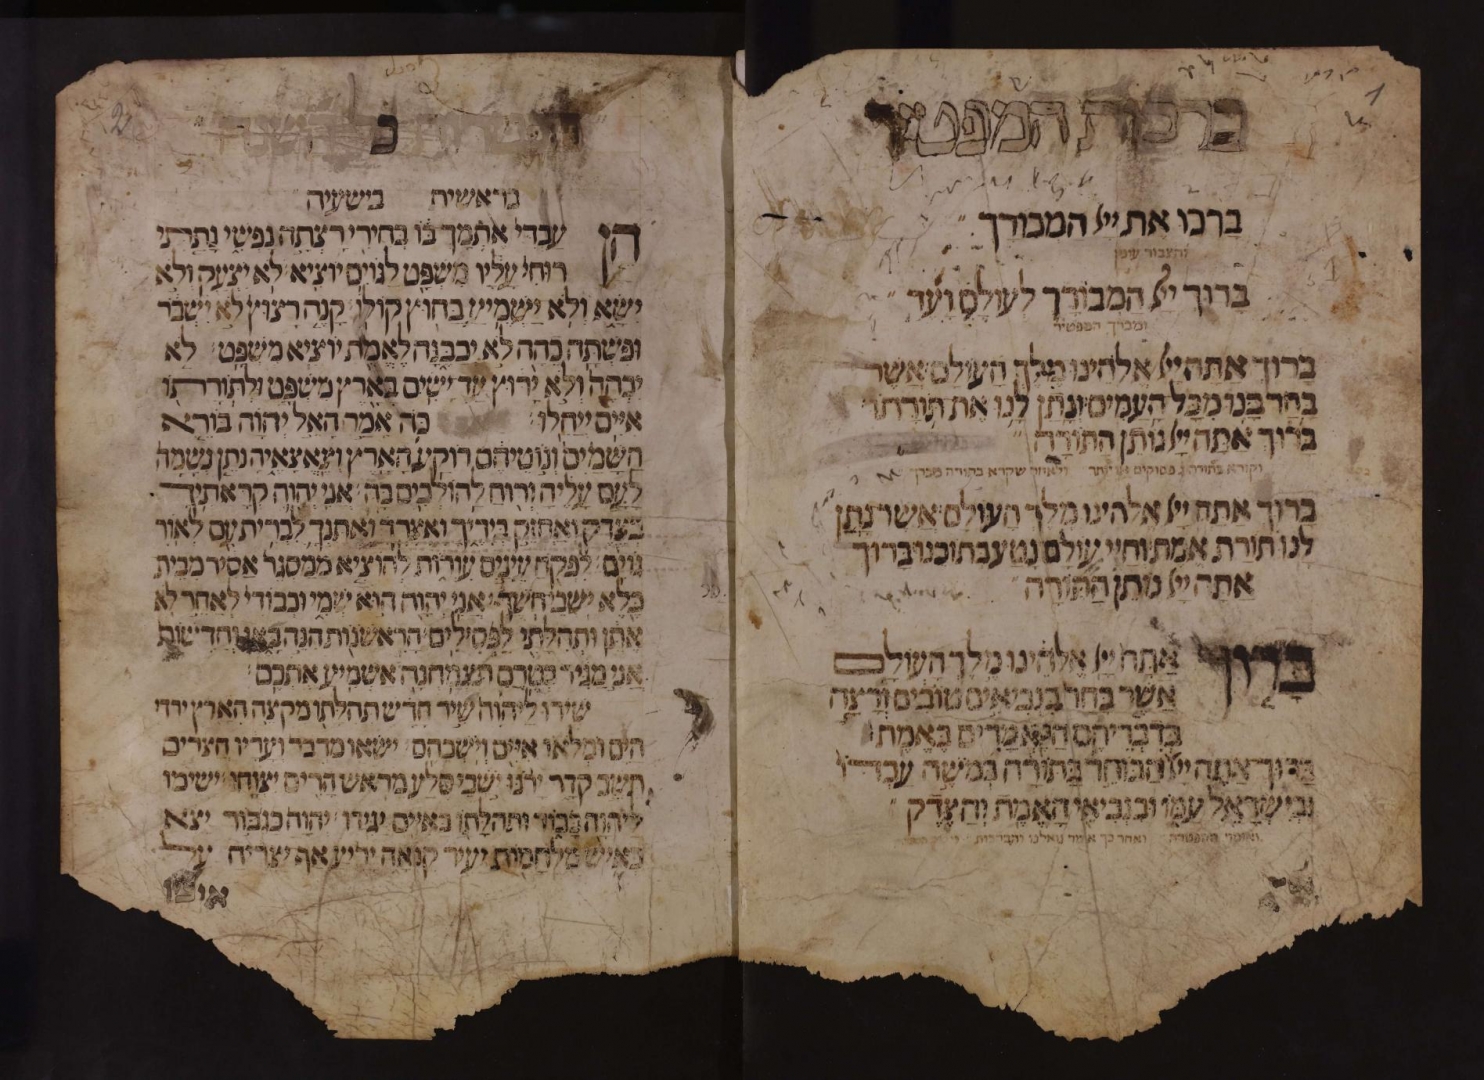 ברכות המפטיר
ברכו את ייא המבורך
והצבור עונין
ברוך ייא המבורך לעולם ועד
ומברך המפטיר
ברוך אתה ייא אלהינו מלך העולם אשר
בחר בנו מכל העמים ונתן לנו את תורתו
ברוך אתה ייא נותן התורה
וקורא בתורה ג פסוקים או יותר ולאחר שקרא בתורה מברך
ברוך אתה ייא אלהינו מלך העולם אשר נתן
לנו תורת אמת וחיי עולם נטע בתוכנו ברוך
אתה ייא נותן התורה
ברוך אתה ייא אלהינו מלך העולם
אשר בחר בנביאים טובים ורצה
בדבריהם הנאמרים באמת
ברוך אתה ייא הבוחר בתורה במשה עבדו
ובישראל עמו ובנביאי האמת והצדק
ואומר ההפטרה ואחר כך אומר גואלנו
בראשית בישעיה
הן עבדי אתמך בו בחירי רצתה נפשי נתתי
רוחי עליו משפט לגוים יוציא לא יצעק ולא
ישא ולא ישמיע בחוץ קולו קנה רצוץ לא ישבר
ופשתה כהה לא יכבנה לאמת יוציא משפט לא
יכהה ולא ירוץ עד ישים בארץ משפט ולתורתו
איים ייחלו כה אמר האל יהוה בורא
השמים ונוטיהם רוקע הארץ וצאצאיה נתן נשמה
לעם עליה ורוח להולכים בה אני יהוה קראתיך
בצדק ואחזק בידך ואצרך ואתנך לברית עם לאור
גוים לפקח עינים עורות להוציא ממסגר אסיר מבית
כלא ישבי חשך אני יהוה הוא שמי וכבודי לאחר לא
אתן ותהלתי לפסילים הראשנות הנה באו וחדשות
אני מגיד בטרם תצמחנה אשמיע אתכם
שירו ליהוה שיר חדש תהלתו מקצה הארץ יורדי
הים ומלאו איים וישביהם ישאו מדבר ועריו חצרים
תשב קדר ירנו ישבי סלע מראש הרים יצוחו ישימו
ליהוה כבוד ותהלתו באיים יגידו יהוה כגבור יצא
כאיש מלחמות יעיר קנאה יריע אף יצריח על